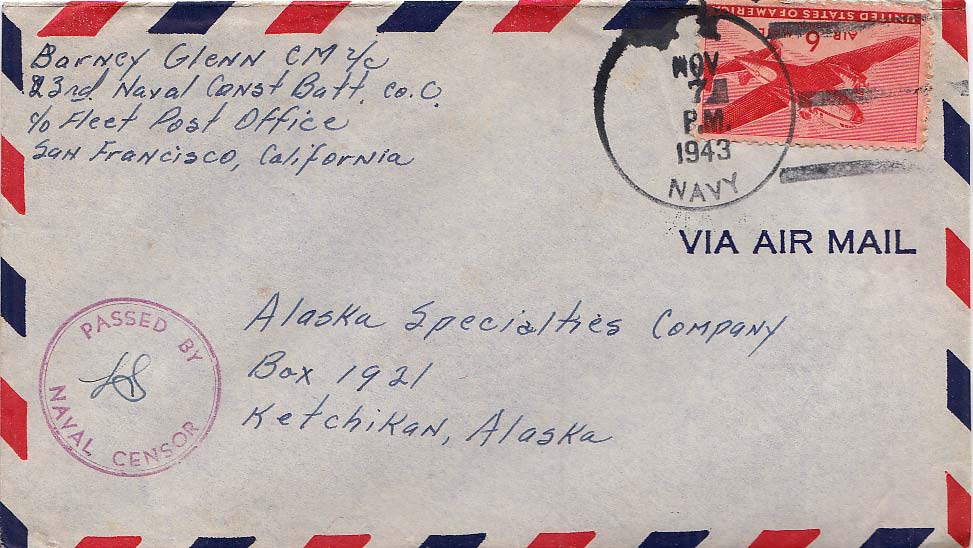 Barney Glenn CM 2/c
23rd. Naval Const Batt. Co. C
c/o Fleet Post Office
San Francisco, California
UNITED STATES OF AMERICA
AIR MAIL
6¢
NOV
7
P.M.
1943
NAVY
VIA AIR MAIL
PASSED BY
NAVAL CENSOR
Alaska Specialties Company
Box 1921
Ketchikan, Alaska